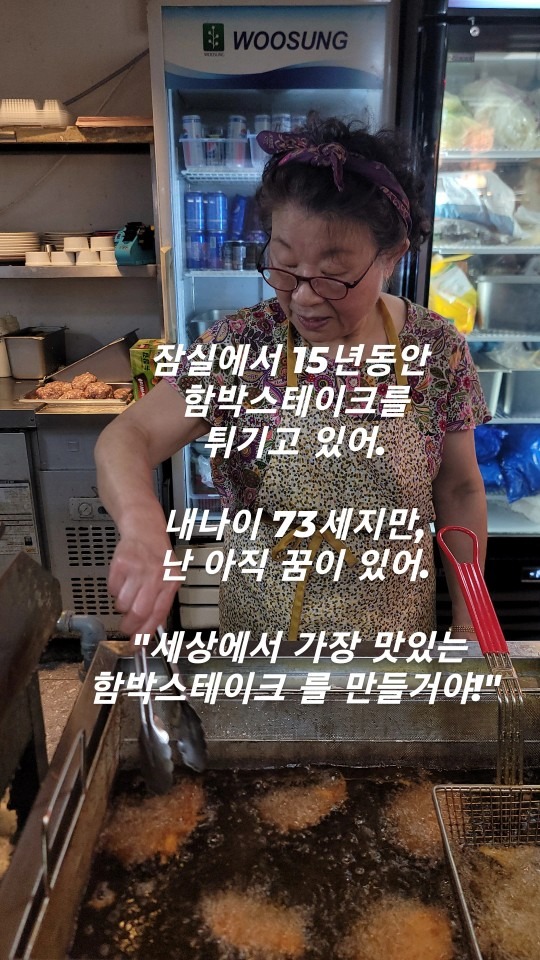 WOOSUNG
잠실에서 15년동안
함박스테이크를
튀기고 있어.
내나이 73세지만,
난 아직 꿈이 있어.
"세상에서 가장 맛있는
함박스테이크 를 만들거야!"